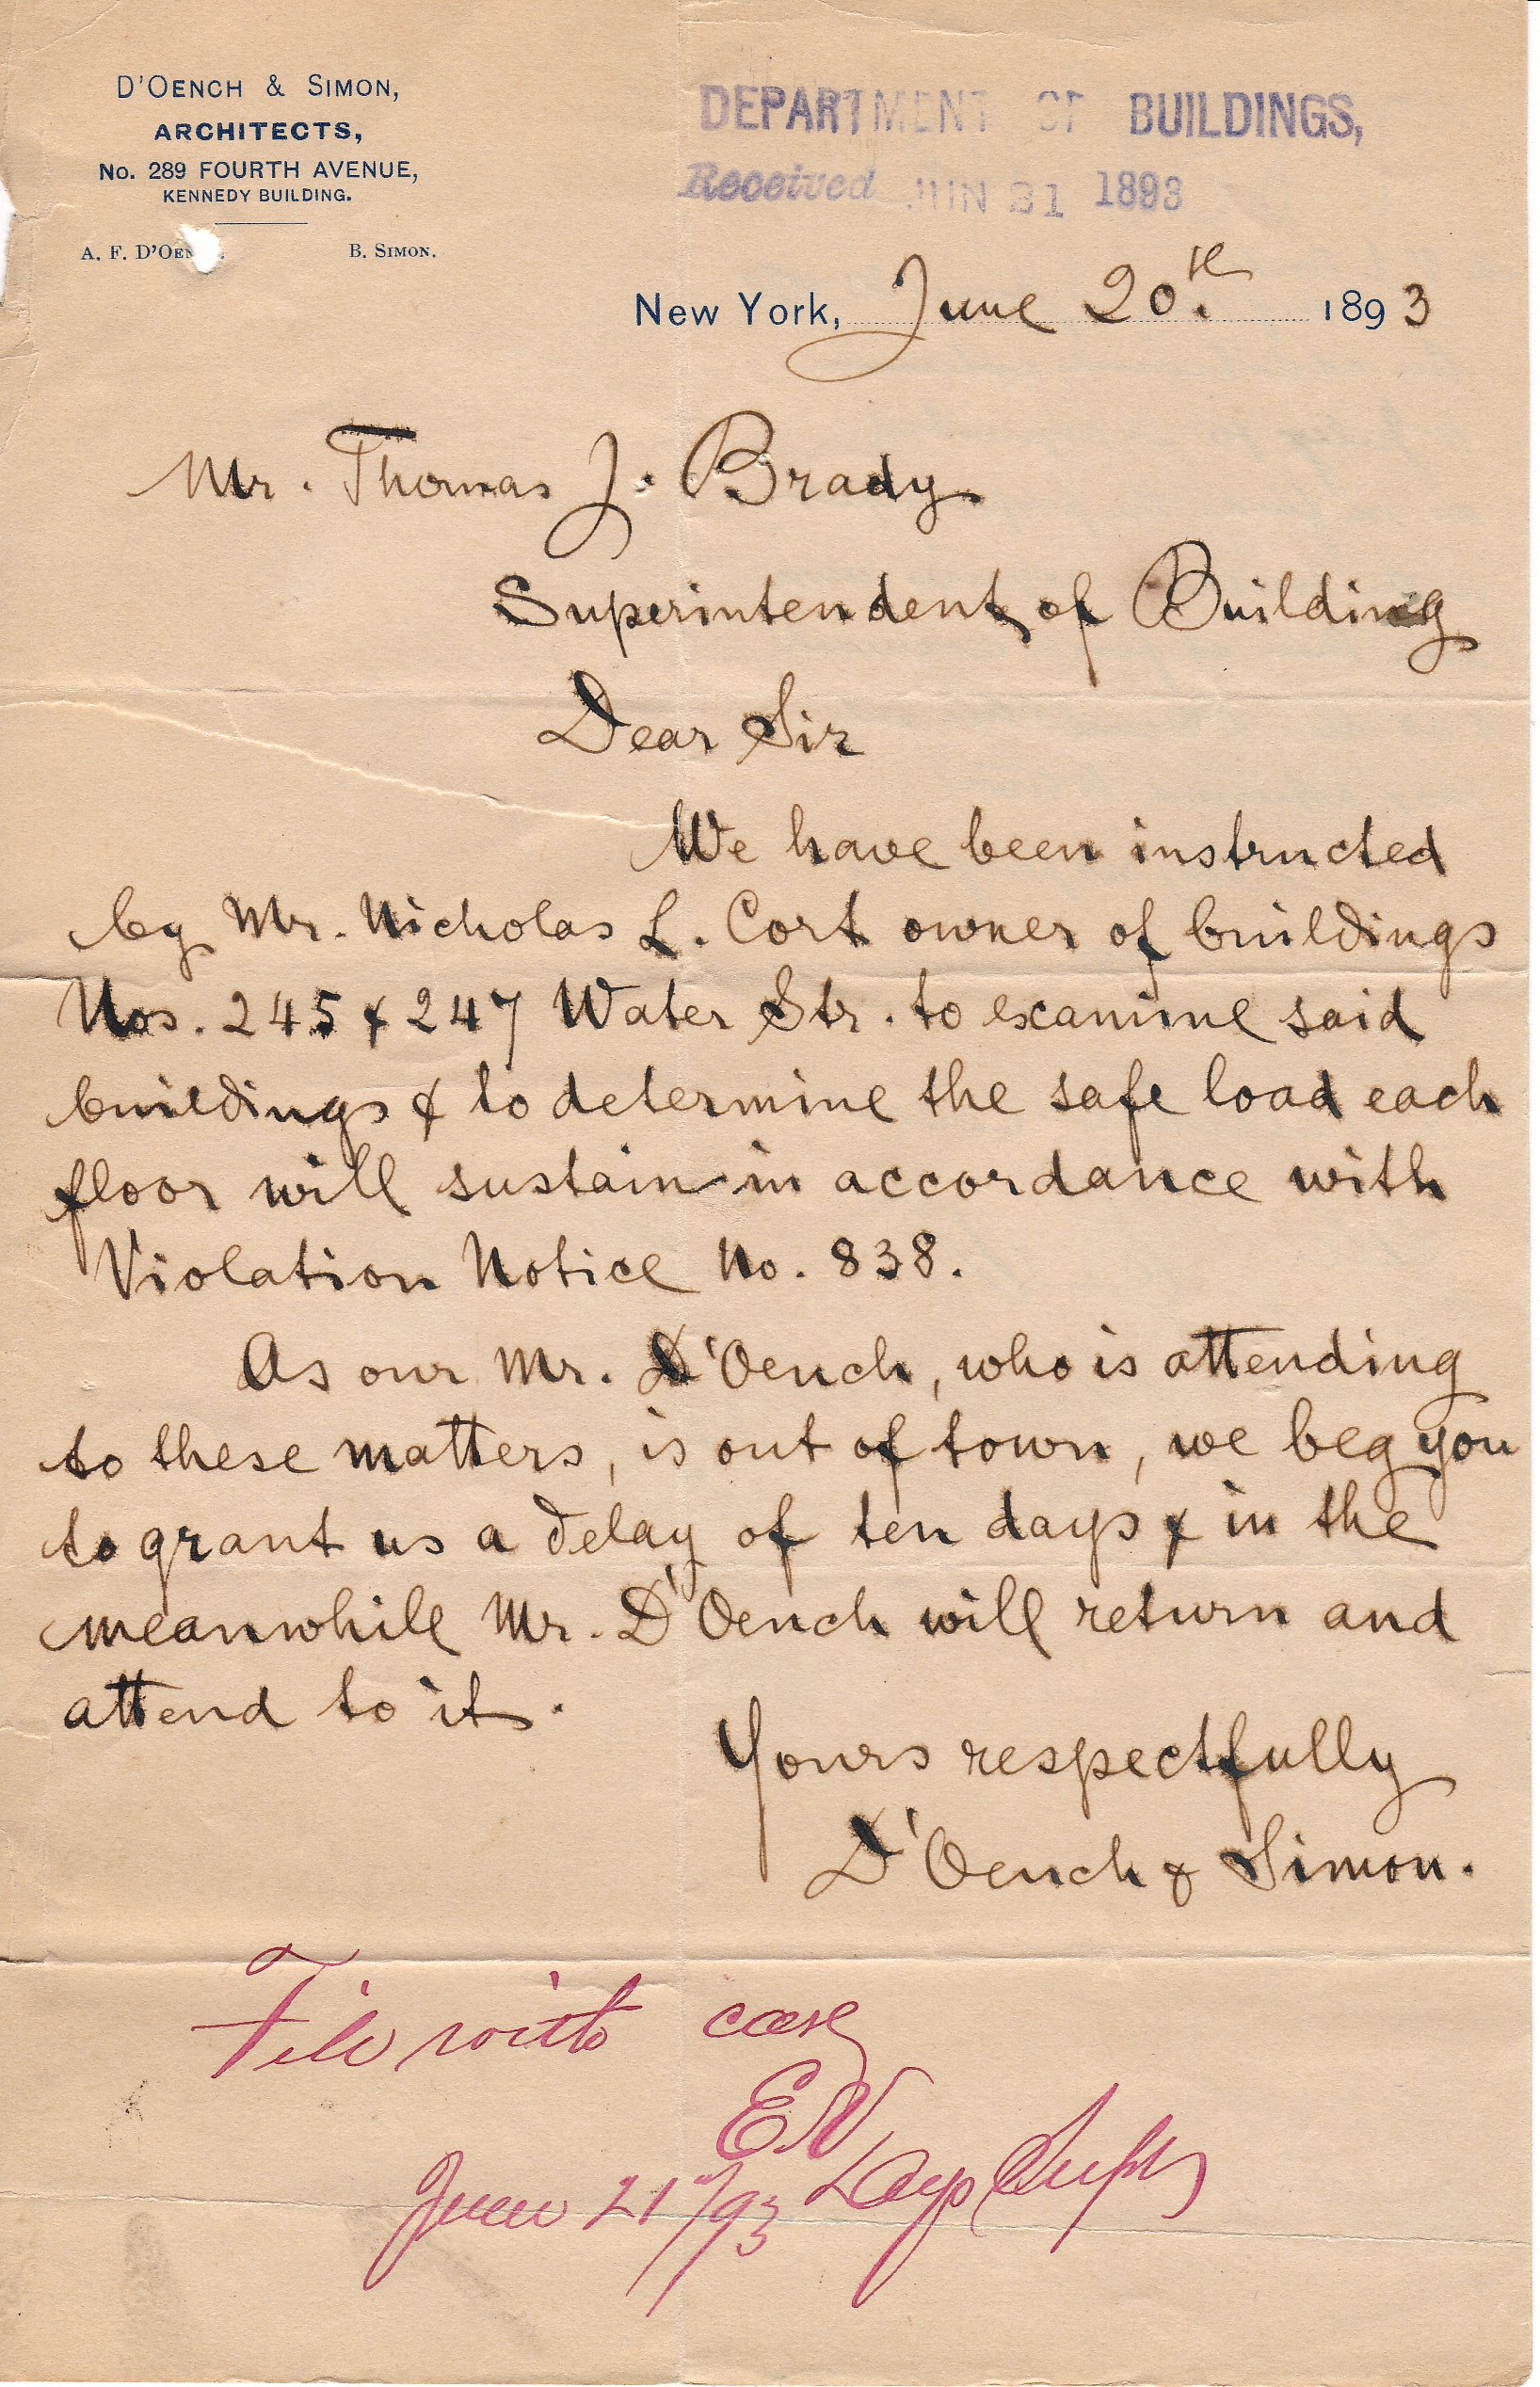 D'OENCH & SIMON,
ARCHITECTS,
No. 289 FOURTH AVENUE,
KENNEDY BUILDING.
A. F. D'OEN
B. SIMON.
DEPARTMENT OF BUILDINGS,
Received JUN 21 1893
New York, June 20th. 1893
Mr. Thomas J. Brady
Superintendent, of Building
Dear Sir
We have been instructed
by Mr. Nicholas L. Cort owner of buildings
Nos. 245 & 247 Water Str. to examine said
buildings & to determine the safe load each
floor will sustain in accordance with
Violation Notice No. 838.
As our Mr. D'Oench, who is attending
to these matters, is out of town, we beg you
to grant us a delay of ten days & in the
meanwhile Mr. D'Oench will return and
attend to it.
Yours respectfully
D'Oench & Simon.
File with case
June 21st/93